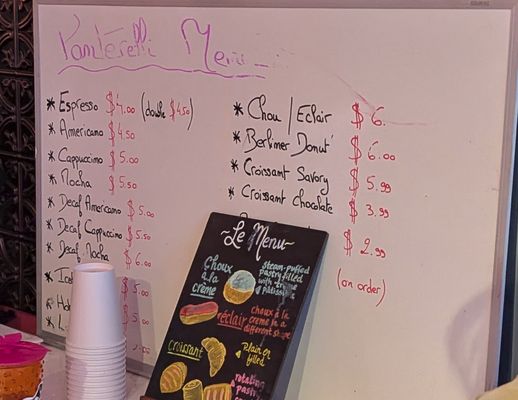 Menu
* Espresso $4.00 (double $4.50)
* Americano $4.50
* Cappuccino $5.00
* Mocha $5.50
* Decaf Americano $5.00
* Decaf Cappuccino $5.50
* Decaf Mocha $6.00
$5.00
$5.00
* Chou / Eclair $6.
* Berliner Donut $6.00
* Croissant Savory $5.99
* Croissant Chocolate $3.99
$2.99
(on order)
Le Menu
Choux à la crème
steam-puffed pastry filled with crème pâtissière
l'éclair
choux à la crème in a different shape
croissant
Plain or filled
rotating